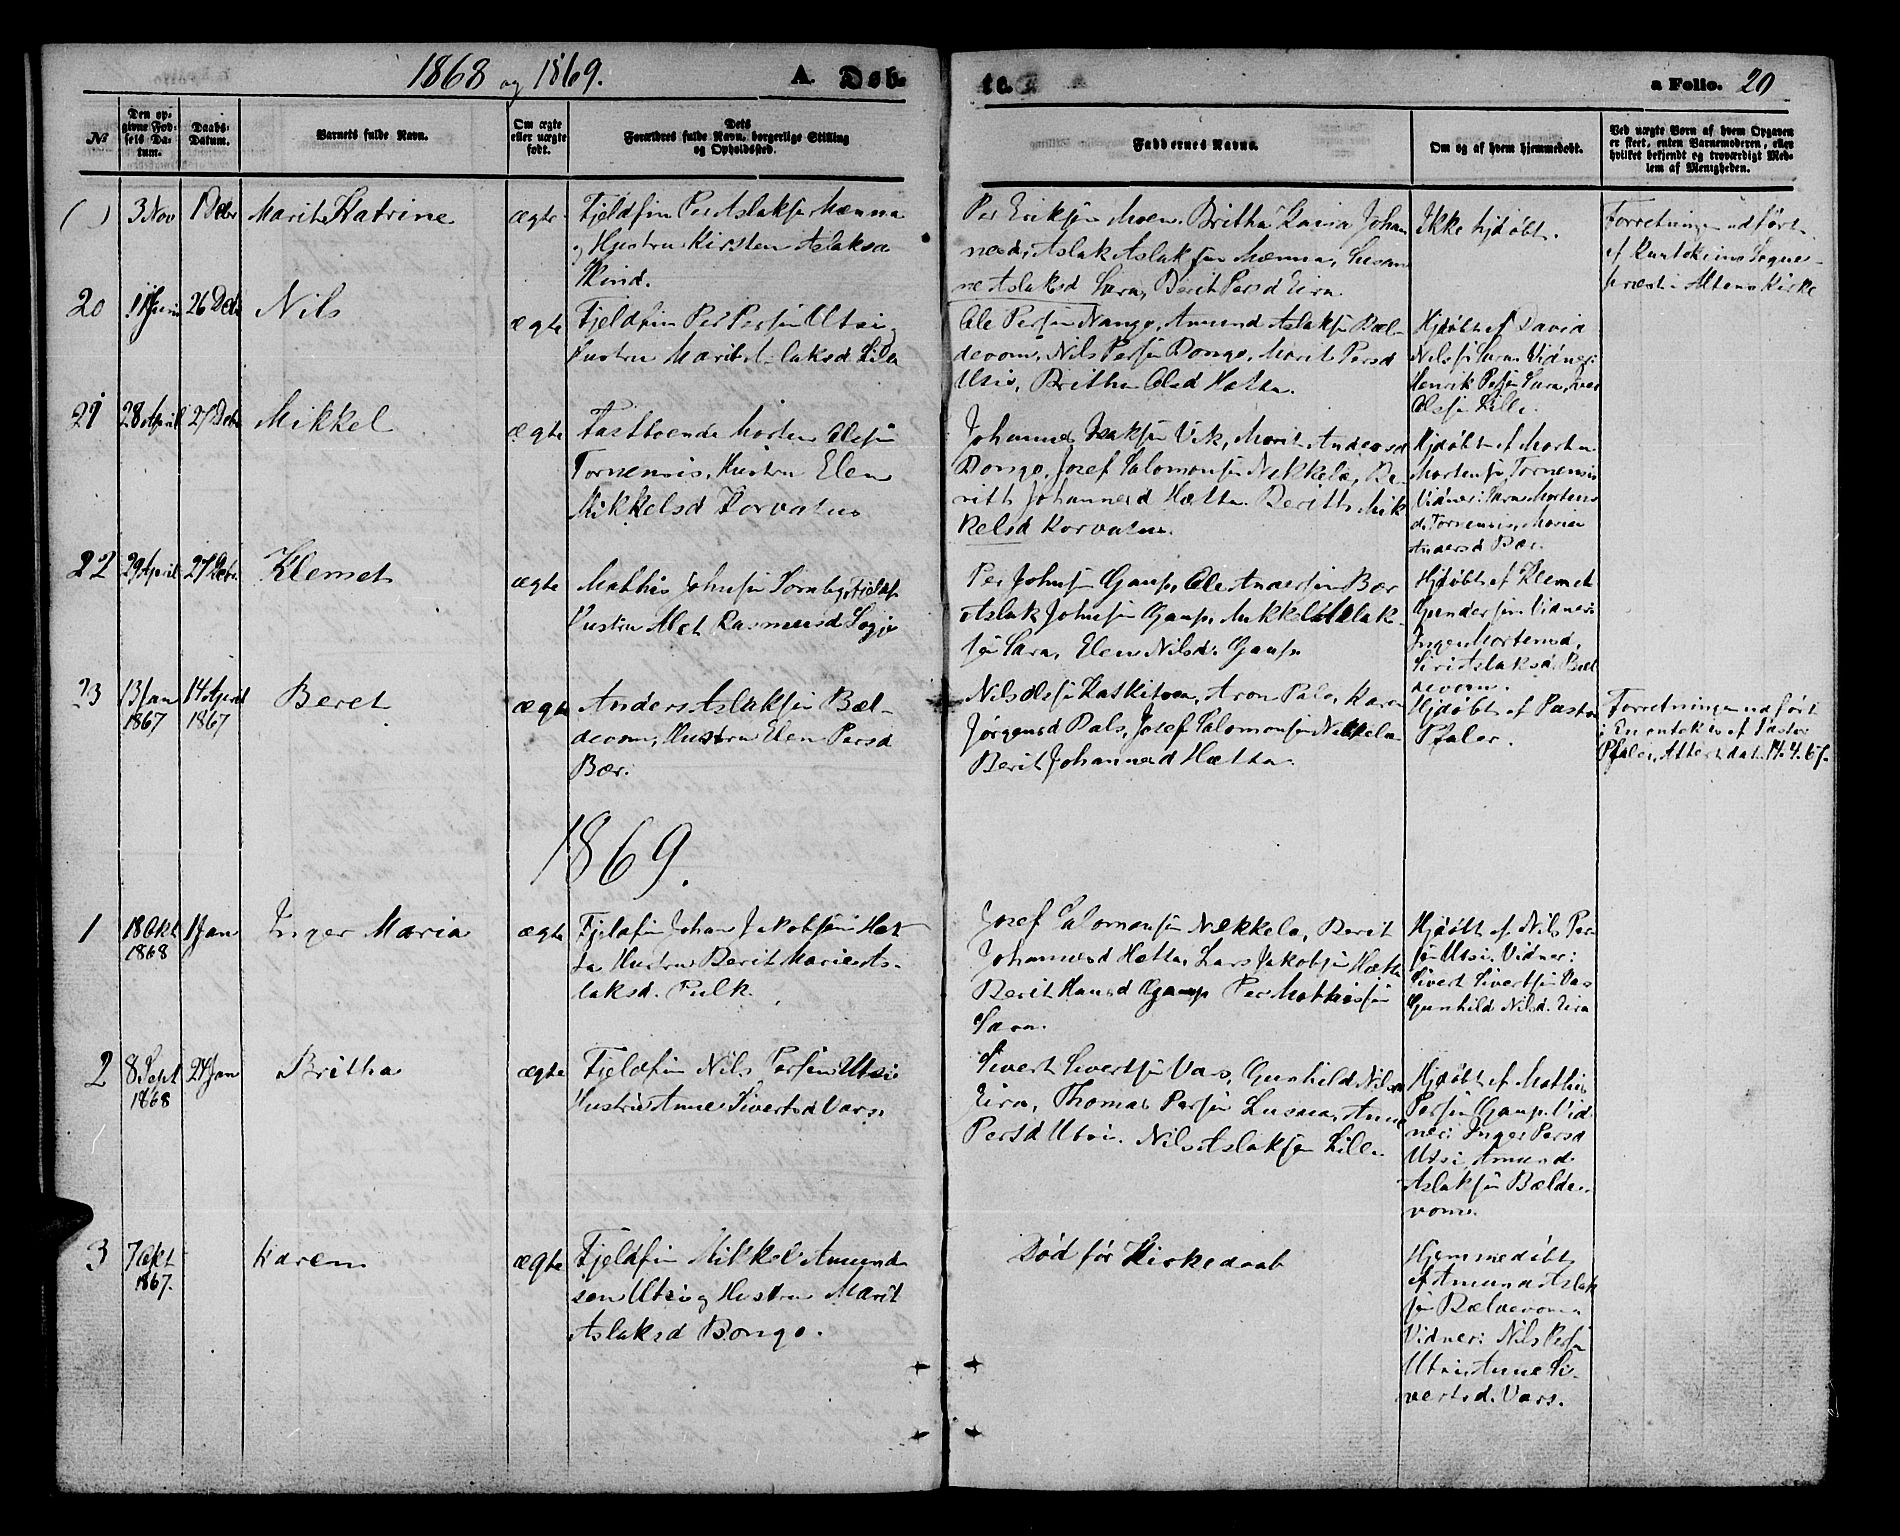 1868 og 1869.
A. Døb-
te.
a Folio. 20
№
Den op-
givne Fød-
sels Da-
tum.
Daabs-
Datum.
Barnets fulde Navn.
Om ægte
eller uægte
født.
Dets
Forældres fulde Navn, borgerlige Stilling
og Opholdssted.
Faddernes Navne.
Om og af hvem hjemmedøbt.
Ved uægte Børn af hvem Opgaven
er skeet, enten Barnemoderen, eller
hvilket bekjendt og troværdigt Med-
lem af Menigheden.
( ) 3 Nov 1 Debr Marit Katrine ægte Fjeldfin Per Aslaksen Mænna
og Hustru Kirsten Aslaksd
Kind.
Per Eriksen Moen, Britha Johan
nesd, Aslak Aslaksen Mænna, Susan
ne Aslaksd Sara, Berit Persd Eira
Ikke hjdøbt.
Forretningen udført
af Kautokeino Sogne-
præst i Altens Kirke
20 11 Juni 26 Debr Nils ægte Fjeldfin Per Persen Utsi
Hustru Marit Aslaksd Lille
Ole Persen Nango, Amund Aslaksen Bæl-
devom, Nils Persen Bongo, Marit Persd
Utsi, Britha Olsd Hætta.
Hjdøbt af David
Nilsen Sara Vidner:
Henrik Persen Sara,
Olsen Lille.
21 28 April 27 Debr Mikkel ægte Fastboende Morten Olsen
Tornensis, Hustru Elen
Mikkelsd Korvatus
Johannes Isaksen Vik, Marit Andersd
Bongo, Josef Salomonsen Nækkela, Be-
rith Johannesd Hætta Berith Mik
kelsd Korvatus.
Hjdøbt af Morten
Mortensen Tornensis
Vidner: Sara Mortens
d. Tornensis, Maria
Andersd Bær.
22 29 April 27 Debr Klemet ægte Mathis Johnsen Sombg, Fjeldf.
Hustru Alet Rasmusd Logje
Per Johnsen Gaup, Ole Andersen Bær
Aslak Johnsen Gaup, Mikkel Aslak-
sen Sara, Elen Nilsd. Gaup
Hjdøbt af Klemet
Gundersen Vidner:
Inger Mortensd,
Siri Aslaksd. Bæl
devom.
23 13 Jan
1867 14 April
1867 Beret ægte Anders Aslaksen Bæl-
devom, Hustru Elen Persd
Bær.
Nils Olsen Kaskitun, Aron Palo, Karen
Jørgensd Pals, Josef Salomonsen Nækkela
Berit Johannesd Hætta.
Hjdøbt af Pastor
Pfaler.
Forretningen udført
i Enontekis af Pastor
Pfaler, Attest dat. 14.4.67.
1869.
1 18 Okt
1868 1 Jan Inger Maria ægte Fjeldfin Johan Jakobsen Hæt-
ta Hustru Berit Marie As-
laksd. Pulk.
Josef Salomonsen Nækkela, Berit
Johannesd Hætta, Lars Jakobsen Hætta
Berit Hansd Gaup Per Mathisen
Sara.
Hjdøbt af Nils Per
sen Utsi. Vidner:
Sivert Sivertsen Vars
Gunhild Nilsd. Eira
2 8 Sept
1868 24 Jan Britha ægte Fjeldfin Nils Persen Utsi
Hustru Anne Sivertsd Vars.
Sivert Sivertsen Vars, Gunhild Nilsd
Eira, Thomas Persen Anne
Persd Utsi. Nils Aslaksen Lille.
Hjdøbt af Mathis
Persen Gaup. Vid
ner: Inger Persd
Utsi, Amund
Aslaksen Bælde-
vom.
3 7 Okt
1867. Karen ægte Fjeldfin Mikkel Amund
sen Utsi og Hustru Marit
Aslaksd Bongo.
Død før Kirkedaab
Hjemmedøbt
af Amund Aslak
sen Bældevom.
Vidner: Nils Persen
Utsi, Anne Si-
vertsd. Vars.